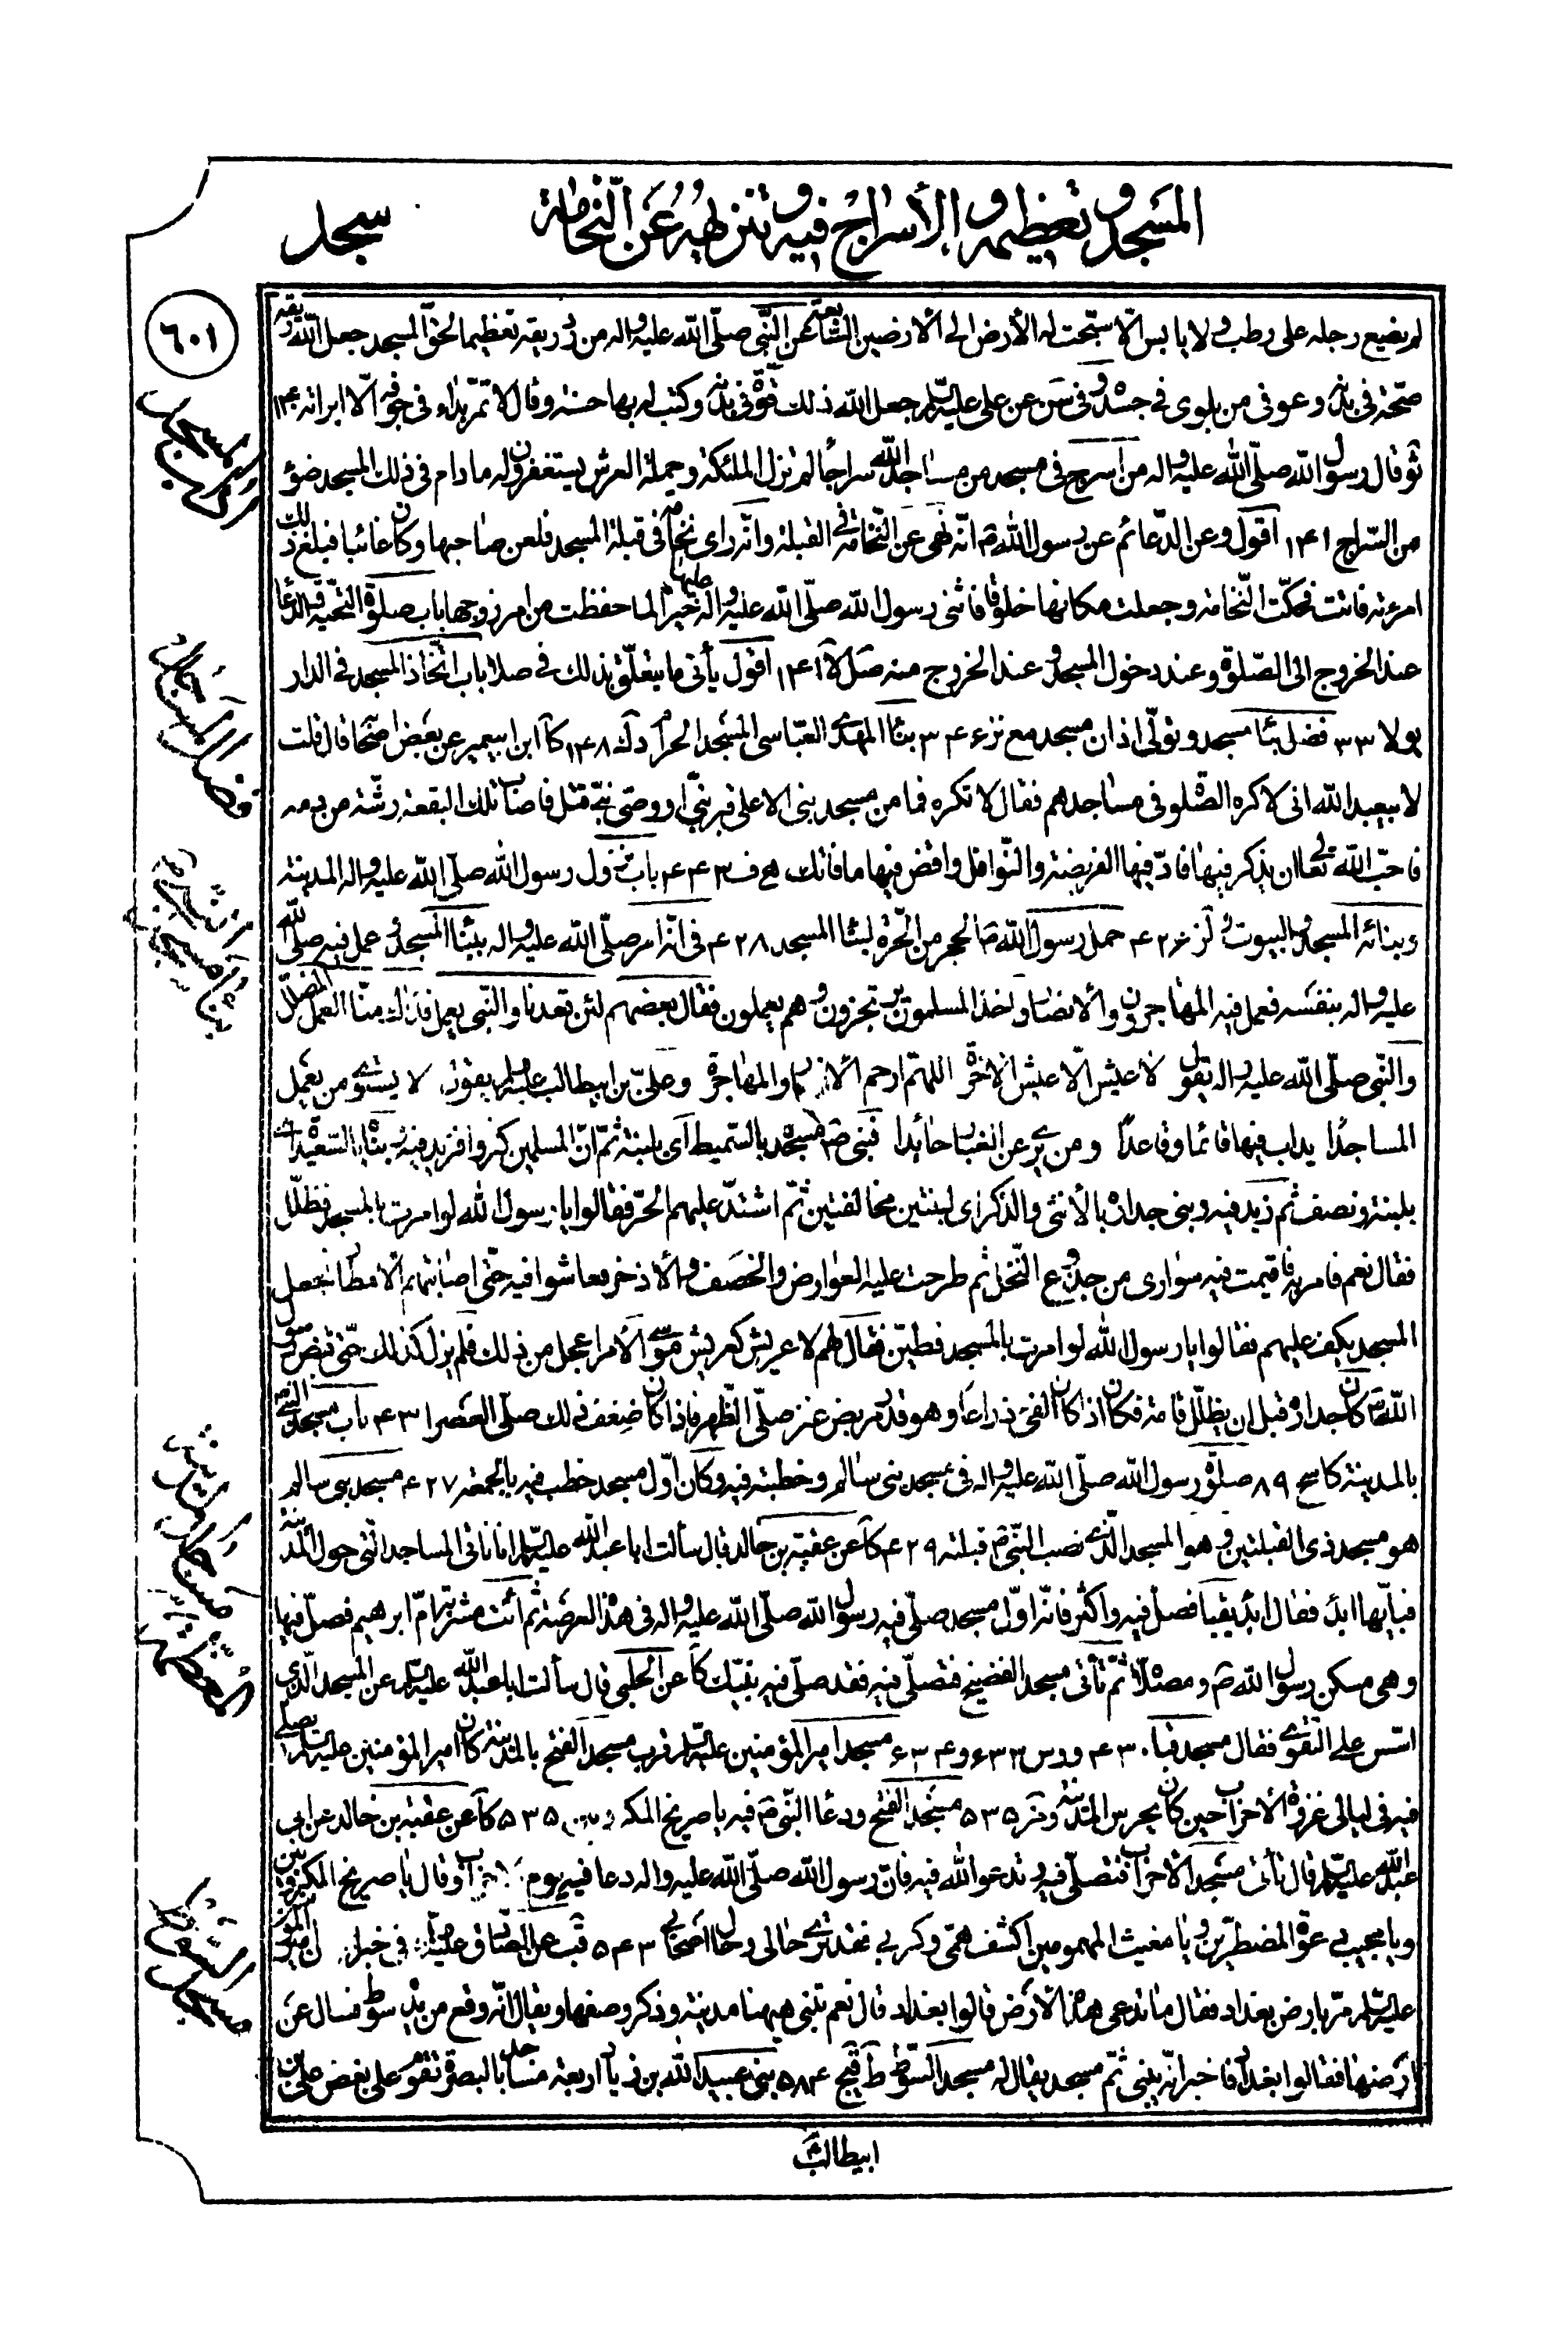 المسجد وتعظيمه والأسراج فيه وتنزيهه عن النخامة
سجد
٦٠١
لم يضع رجله على رطب ولا يابس الّا سبّحت له الأرض الى الأرضين السّابعة عن النّبي صلّى الله عليه واله من ردّ ريقه تعظيما لحقّ المسجد جعل الله ريقه
صحّة في بدنه وعوفي من بلوى في جسده وفي سن عن علي عليه السّلم جعل الله ذلك قوّة في بدنه وكتب له بها حسنة وقال لا تمرّ بداء في جوفه الّا ابراته ١٣٠
ثو قال رسول الله صلّى الله عليه واله من اسرج في مسجد من مساجد الله سراجًا لم تزل الملئكة وحملة العرش يستغفرون له ما دام في ذلك المسجد ضوء
من السّراج ١٤١ اقول وعن الدّعائم عن رسول الله ص انّه نهى عن النّخامة في القبلة وانّه راى نخامة في قبلة المسجد فلعن صاحبها وكان غائبا فبلغ ذلك
امرءته فاتت فحكّت النّخامة وجعلت مكانها خلوقا فاثنى رسول الله صلّى الله عليه واله عليها خيرًا لما حفظت من امر زوجها باب صلوة التحيّة والدّعا
عند الخروج الى الصّلوة وعند دخول المسجد وعند الخروج منه صل لا ١٤١ اقول يأتي ما يتعلّق بذلك في صلا باب اتّخاذ المسجد في الدار
يو لا ٣٣ فضل بنا مسجد وتولّى اذان مسجد مع نز ٣٤٤ بنا المهدي العبّاسي المسجد الحرام دك ١٤٨ كا ابن ابيعمير عن بعض اصحا قال قلت
لابيعبدالله اني لاكره الصّلوة في مساجدهم فقال لا تكره فما من مسجد بني الا على قبر نبيّ او وصيّ نبيّ قتل فاصاب تلك البقعة رشّة من دمه
فاحبّ الله تعالى ان يذكر فيها فادّ فيها الفريضة والنّوافل واقض فيها ما فاتك هج ف ٤٤٣ باب نزول رسول الله صلّى الله عليه واله المدينة
وبنائه المسجد والبيوت و لز ٤٢٦ حمل رسول الله ص الحجر من الحرّة لبنا المسجد ٤٢٨ في انّه امر صلّى الله عليه واله ببناء المسجد وعمل فيه صلى الله
عليه واله بنفسه فعمل فيه المهاجرون والأنصار واخذ المسلمون يرتجزون وهم يعملون فقال بعضهم لئن قعدنا والنّبي يعمل فذاك منّا العمل المضلّل
والنّبي صلّى الله عليه واله يقول لا عيش الّا عيش الاخرة اللهمّ ارحم الانصار والمهاجرة وعليّ بن ابيطالب عليه السلم يقول لا يستوي من يعمل
المساجدا يداب فيها قائما وقاعدًا ومن يرى عن الغبار حائدا فبنى ص مسجده بالسّميط اى لبنة لبنة ثمّ انّ المسلمين كثروا فزيد فيه وبناه بالسّعيدة
بلبنة ونصف ثم زيد فيه وبنى جداره بالأنثى والذكر اى لبنتين مخالفتين ثمّ اشتدّ عليهم الحرّ فقالوا يا رسول الله لو امرت بالمسجد فظلّل
فقال نعم فامر به فاقيمت فيه سوارى من جذوع النّخل ثم طرحت عليه العوارض والخصف والأذخر فعاشوا فيه حتّى اصابتهم الأمطار فجعل
المسجد يكف عليهم فقالوا يا رسول الله لو امرت بالمسجد فطيّن فقال لهم لا عريش كعريش موسى الأمر اعجل من ذلك فلم يزل كذلك حتّى قبض رسول
الله ص كان جداره قبل ان يظلّل قامة فكان اذا كان الفئ ذراعا وهو قدر مربض عنز صلّى الظّهر فاذا كان ضعف ذلك صلى العصر ٤٣١ باب مسجد النّبي
بالمدينة كاسح ٨٩ صلوة رسول الله صلّى الله عليه واله في مسجد بني سالم وخطبته فيه وكان اوّل مسجد خطب فيه بالجمعة ٤٢٧ مسجد بني سالم
هو مسجد ذى القبلتين وهو المسجد الّذي نصب النّبي ص قبلته ٤٢٩ كا عن عقبة بن خالد قال سألت ابا عبد الله عليه السّلم انا ناتي المساجد الّتي حول المدينة
فبايّها ابدء فقال ابدء بقبا فصلّ فيه واكثر فانّه اوّل مسجد صلّى فيه رسول الله صلّى الله عليه واله في هذه العرصة ثم ائت مشربة امّ ابرهيم فصلّ فيها
وهي مسكن رسول الله ص ومصلّاه ثمّ تأتي مسجد الفضيخ فتصلّي فيه فقد صلّى فيه نبيّك كا عن الحلبي قال سألت ابا عبد الله عليه السلم عن المسجد الّذي
اسّس على التقوى فقال مسجد قبا ٤٣٠ و وس ٦٣٣ و ٦٣٤ مسجد امير المؤمنين عليه السلم قرب مسجد الفتح بالمدينة كان امير المؤمنين عليه السلم يصلّي
فيه في ليالي غزوة الأحزاب حين كان يحرس المدينة و نر ٥٣٥ مسجد الفتح ودعا النّبي ص فيه يا صريخ المكروبين ٥٣٥ كا عن عقبة بن خالد عن ابي
عبد الله عليه السلم قال تأتي مسجد الأحزاب فتصلّي فيه وتدعو الله فيه فانّ رسول الله صلّى الله عليه واله دعا فيه يوم الأحزاب وقال يا صريخ المكروبين
ويا مجيب دعوة المضطرّين ويا مغيث المهمومين اكشف همّي وكربي فقد ترى حالي وحال اصحابي ٥٤٣ قب عن الصّادق عليه السلم في خبر ان امير المؤمنين
عليه السلم مرّ بارض بغداد فقال ما تدعى هذه الأرض قالوا بغداد قال نعم تبنى هيهنا مدينة وذكر وصفها ويقال انّه وقع من يده سوط فسال عن
ارضها فقالوا بغداد فاخبر انّه يبنى ثمّ مسجد يقال له مسجد السّوط ط قيج ٥٨٤ بنى عبيدالله بن زياد اربعة مساجد بالبصرة تقوم على بغض علي بن
ابيطالب
فضل بناء المسجد